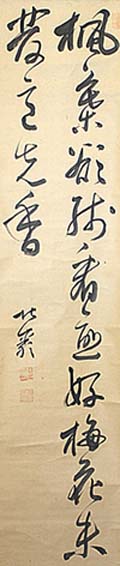 楓葉欲残看愈好梅花未
發意先香